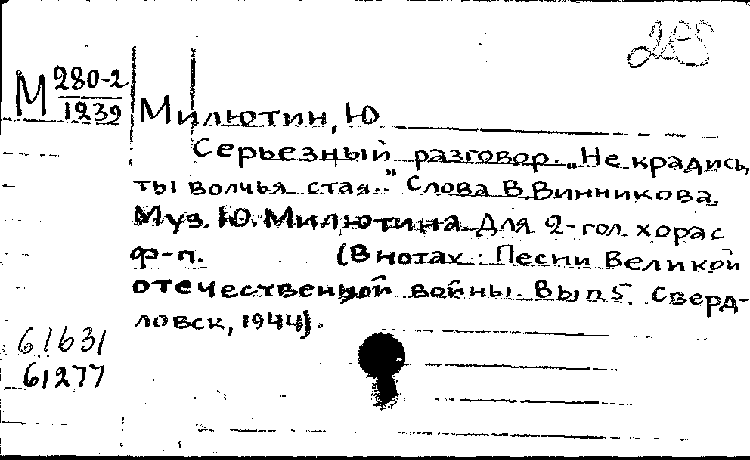 М 280-2
1239
Милютин, Ю
Серьезный разговор. „Не крадись,
ты волчья стая.." Слова В. Винникова.
Муз. Ю. Милютина. Для 2-гол. хора с
ф-п. (В нотах: Песни Великой
отечественной войны. Вып 5. Сверд-
ловск, 1944).
61631
61277